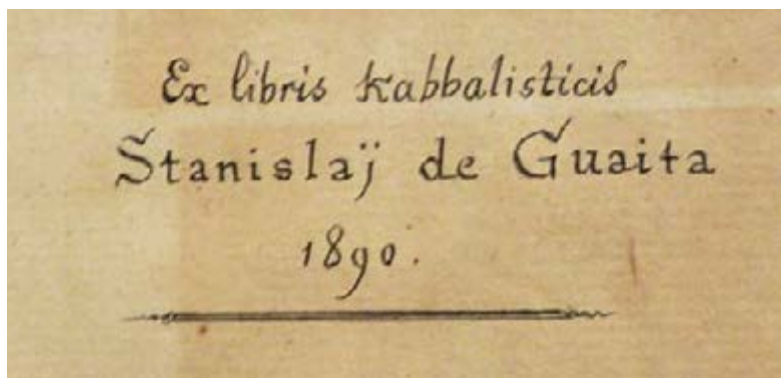 Ex libris kabbalisticis
Stanislaÿ de Guaita
1890.